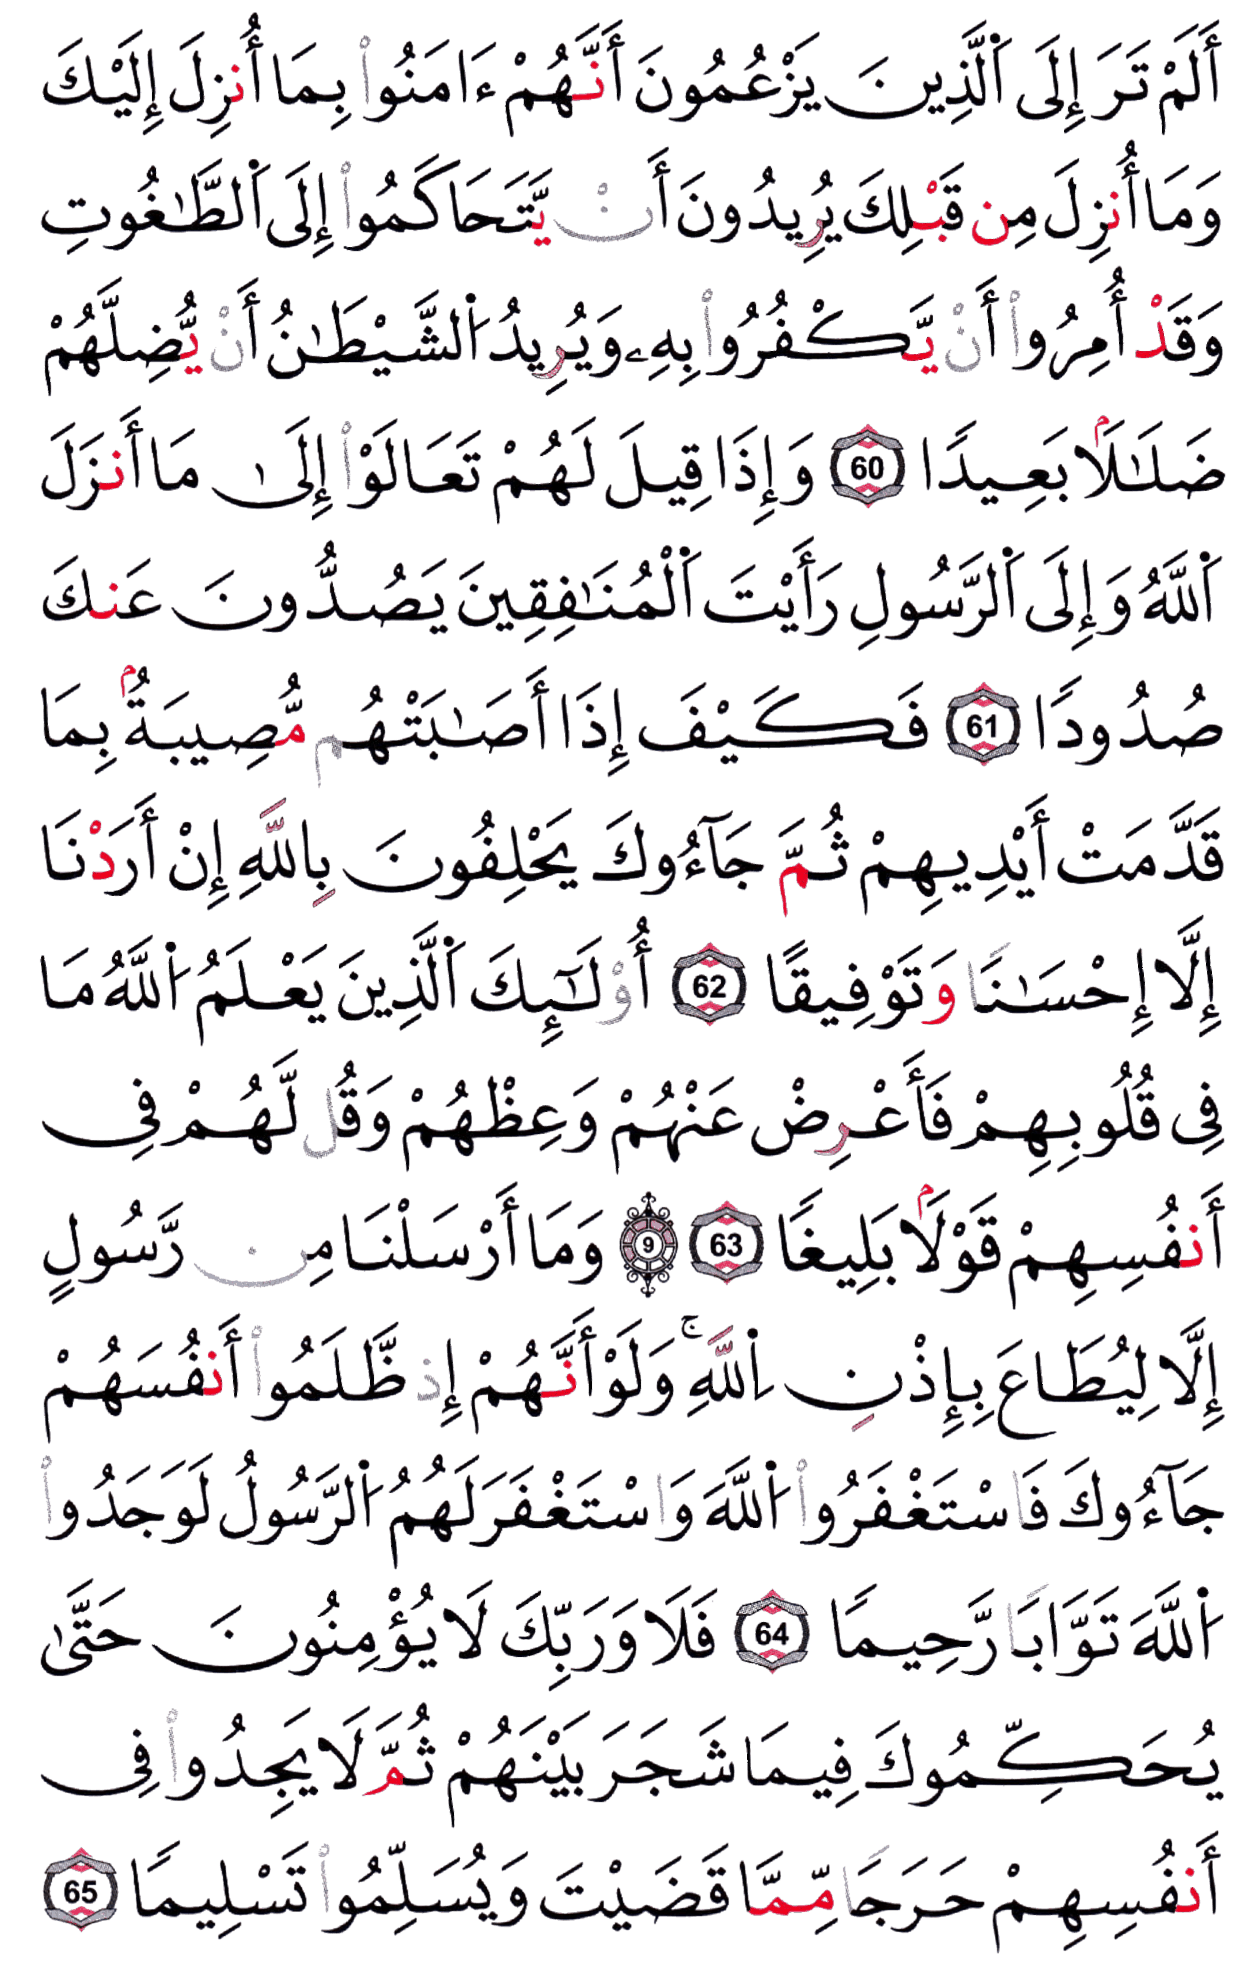 أَلَمْ تَرَ إِلَى ٱلَّذِينَ يَزْعُمُونَ أَنَّهُمْ ءَامَنُوا۟ بِمَا أُنزِلَ إِلَيْكَ
وَمَا أُنزِلَ مِن قَبْلِكَ يُرِيدُونَ أَنْ يَّتَحَاكَمُوا۟ إِلَى ٱلطَّـٰغُوتِ
وَقَدْ أُمِرُوا۟ أَنْ يَّكْفُرُوا۟ بِهِۦ وَيُرِيدُ ٱلشَّيْطَـٰنُ أَنْ يُّضِلَّهُمْ
ضَلَـٰلَاۢ بَعِيدًا 60 وَإِذَا قِيلَ لَهُمْ تَعَالَوْا۟ إِلَىٰ مَا أَنزَلَ
ٱللَّهُ وَإِلَى ٱلرَّسُولِ رَأَيْتَ ٱلْمُنَـٰفِقِينَ يَصُدُّونَ عَنكَ
صُدُودًا 61 فَكَيْفَ إِذَا أَصَـٰبَتْهُم مُّصِيبَةُۢ بِمَا
قَدَّمَتْ أَيْدِيهِمْ ثُمَّ جَآءُوكَ يَحْلِفُونَ بِٱللَّهِ إِنْ أَرَدْنَا
إِلَّا إِحْسَـٰنًا وَتَوْفِيقًا 62 أُوْلَـٰٓئِكَ ٱلَّذِينَ يَعْلَمُ ٱللَّهُ مَا
فِى قُلُوبِهِمْ فَأَعْرِضْ عَنْهُمْ وَعِظْهُمْ وَقُل لَّهُمْ فِى
أَنفُسِهِمْ قَوْلَاۢ بَلِيغًا 63 9 وَمَا أَرْسَلْنَا مِن رَّسُولٍ
إِلَّا لِيُطَاعَ بِإِذْنِ ٱللَّهِۚ وَلَوْ أَنَّهُمْ إِذ ظَّلَمُوا۟ أَنفُسَهُمْ
جَآءُوكَ فَاسْتَغْفَرُوا۟ ٱللَّهَ وَاسْتَغْفَرَ لَهُمُ ٱلرَّسُولُ لَوَجَدُوا۟
ٱللَّهَ تَوَّابًا رَّحِيمًا 64 فَلَا وَرَبِّكَ لَا يُؤْمِنُونَ حَتَّىٰ
يُحَكِّمُوكَ فِيمَا شَجَرَ بَيْنَهُمْ ثُمَّ لَا يَجِدُوا۟ فِى
أَنفُسِهِمْ حَرَجًا مِّمَّا قَضَيْتَ وَيُسَلِّمُوا۟ تَسْلِيمًا 65